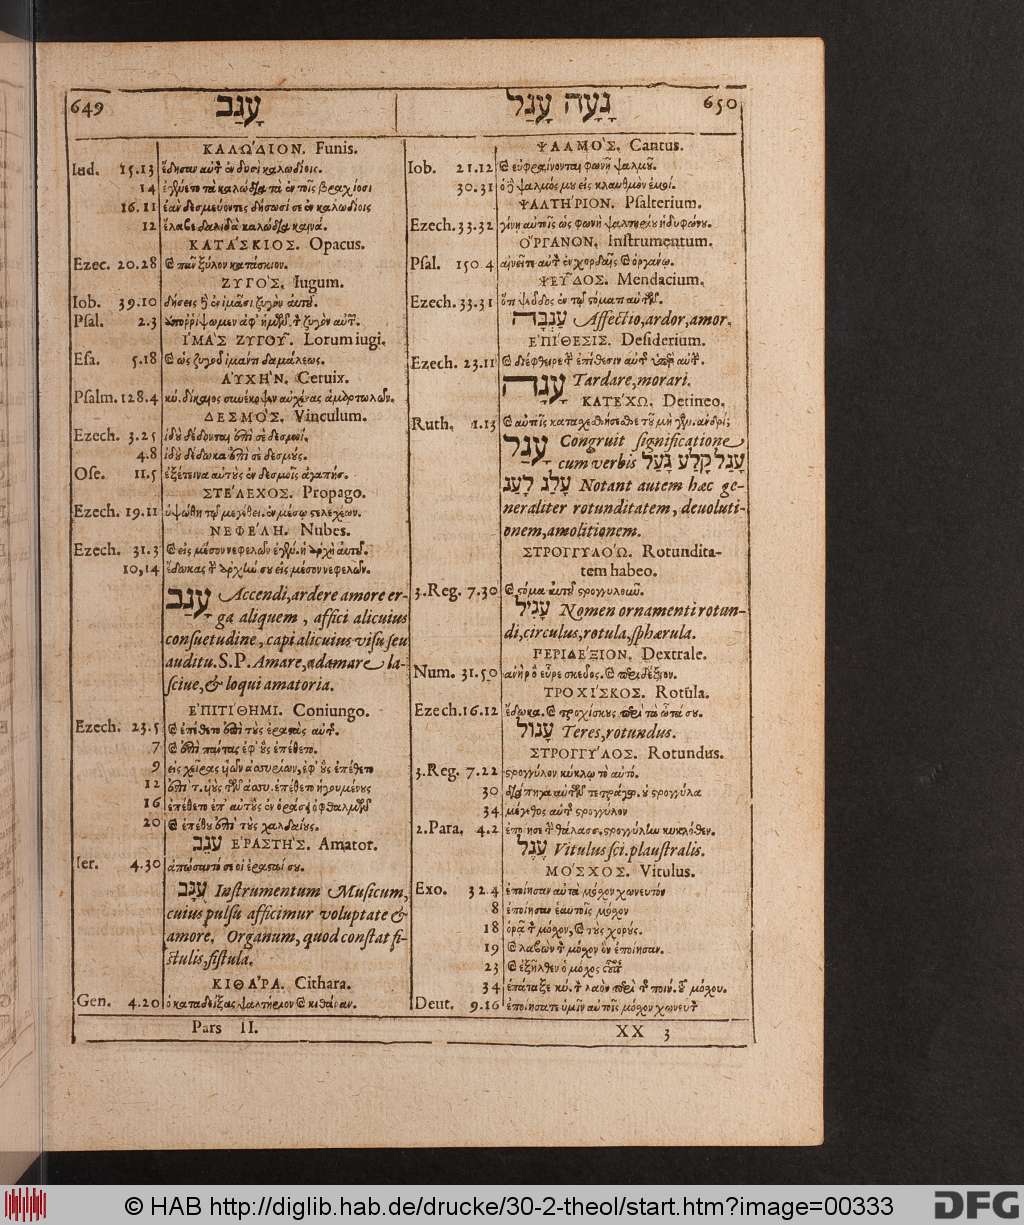 649 עָגַב
ΚΑΛΩ΄ΔΙΟΝ. Funis.
Iud. 15.13 ἔδησαν αὐτὸν ἐν δυσὶ καλωδίοις.
14 τὰ καλώδια τὰ ἐν τοῖς βραχίοσι
16.11 ἐὰν δεσμεύοντες δήσωσί σε ἐν καλωδίοις
12 ἔλαβε δαλιδὰ καλώδια καινά.
ΚΑΤΑ΄ΣΚΙΟΣ. Opacus.
Ezec. 20.28 ϗ πᾶν ξύλον κατάσκιον.
ΖΥΓΟ΄Σ. Iugum.
Iob. 39.10 δήσεις ἐν ἱμᾶσι ζυγὸν αὐτοῦ.
Psal. 2.3 ἀπορρίψωμεν ἀφ' ἡμῶν τὸν ζυγὸν αὐτῶν.
ἹΜΑ΄Σ ΖΥΓΟΥ῀. Lorum iugi.
Esa. 5.18 ϗ ὡς ζυγοῦ ἱμάντι δαμάλεως.
ΑΥΧΗ΄Ν. Ceruix.
Psalm. 128.4 κύ. δίκαιος συνέκοψεν αὐχένας ἁμαρτωλῶν.
ΔΕΣΜΟ΄Σ. Vinculum.
Ezech. 3.25 ἰδοὺ δέδονται ἐπὶ σὲ δεσμοί.
4.8 ἰδοὺ δέδωκα ἐπὶ σὲ δεσμούς.
Ose. 11.5 ἐξέτεινα αὐτοὺς ἐν δεσμοῖς ἀγαπήσ.
ΣΤΕ΄ΛΕΧΟΣ. Propago.
Ezech. 19.11 ὑψώθη τῷ μεγέθει ἐν μέσῳ στελεχῶν.
ΝΕΦΕ΄ΛΗ. Nubes.
Ezech. 31.3 ϗ εἰς μέσον νεφελῶν ἐγέν. ἡ ἀρχὴ αὐτοῦ.
10,14 ἔδωκας τὴν ἀρχήν σου εἰς μέσον νεφελῶν.
עָגַב Accendi, ardere amore er-
ga aliquem, affici alicuius
consuetudine, capi alicuius visu seu
auditu. S.P. Amare, adamare la-
sciue, & loqui amatoria.
ΕΠΙΤΙΘΗΜΙ. Coniungo.
Ezech. 23.5 ϗ ἐπέθετο ἐπὶ τοὺς ἐραστὰς αὐτῆς.
7 ϗ ἐπὶ πάντας ἐφ' οὓς ἐπέθετο.
9 εἰς χεῖρας υἱῶν ἀσσυρίων, ἐφ' οὓς ἐπέθετο
12 ἐπὶ τ. υἱοὺς τῶν ἀσσυ. ἐπέθετο ἡγουμένους
16 ἐπέθετο ἐπ' αὐτοὺς ἐν ὁράσει ὀφθαλμῶν
20 ϗ ἐπέθου ἐπὶ τοὺς χαλδαίους.
עֹגֵב ἘΡΑΣΤΗ΄Σ. Amator.
Ier. 4.30 ἀπώσαντό σε οἱ ἐρασταί σου.
עֻגָב Instrumentum Musicum,
cuius pulsu afficimur voluptate &
amore. Organum, quod constat fi-
stulis, fistula.
ΚΙΘΑ΄ΡΑ. Cithara.
Gen. 4.20 ὁ καταδείξας ψαλτήριον ϗ κιθάραν.
Pars II.
עָגָה עָגַל 650
ΨΑΛΜΟ΄Σ. Cantus.
Iob. 21.12 ϗ εὐφραίνονται φωνῇ ψαλμοῦ.
30.31 ὁ ψαλμός μου εἰς κλαυθμὸν ἐμοί.
ΨΑΛΤΗ΄ΡΙΟΝ. Psalterium.
Ezech. 33.32 γίνῃ αὐτοῖς ὡς φωνὴ ψαλτηρίου ἡδυφώνου.
Ο῎ΡΓΑΝΟΝ. Instrumentum.
Psal. 150.4 αἰνεῖτε αὐτὸν ἐν χορδαῖς ϗ ὀργάνῳ.
ΨΕΥ῀ΔΟΣ. Mendacium.
Ezech. 33.31 ὅτι ψεῦδος ἐν τῷ στόματι αὐτῶν.
עֲגָבָה Affectio, ardor, amor.
ἘΠΙ΄ΘΕΣΙΣ. Desiderium.
Ezech. 23.11 ϗ διέφθειρε τὴν ἐπίθεσιν αὐτῆς ὑπὲρ αὐτήν.
עָגָה Tardare, morari.
ΚΑΤΕ΄ΧΩ. Detineo.
Ruth. 1.13 ϗ αὐτοῖς κατασχεθήσεσθε τοῦ μὴ γεν. ἀνδρί;
עָגַל Congruit significatione
cum verbis עָגַל קָלַע גָּעַל
עָלַג לָעַג Notant autem hæc ge-
neraliter rotunditatem, deuoluti-
onem, amolitionem.
ΣΤΡΟΓΓΥΛΟ΄Ω. Rotundita-
tem habeo.
3.Reg. 7.30 ϗ στόμα αὐτοῦ στρογγυλοῦν.
עָגִיל Nomen ornamenti rotun-
di, circulus, rotula, sphærula.
ΠΕΡΙΔΕΞΙΟΝ. Dextrale.
Num. 31.50 ἀνὴρ ὃ εὗρε σκεῦος. ϗ περιδέξιον.
ΤΡΟΧΙ΄ΣΚΟΣ. Rotula.
Ezech. 16.12 ἔδωκα. ϗ τροχίσκους περὶ τὰ ὦτά σου.
עָגוֹל Teres, rotundus.
ΣΤΡΟΓΓΥ΄ΛΟΣ. Rotundus.
3.Reg. 7.22 στρογγύλον κύκλῳ τὸ αὐτό.
30 διάπηγα αὐτῶν τετράγω. οὐ στρογγύλα
34 μέγεθος αὐτοῦ στρογγύλον
2.Para. 4.2 ἐποίησε τὴν θάλασσ. στρογγύλην κυκλόθεν.
עֵגֶל Vitulus sci. plaustralis.
ΜΟ΄ΣΧΟΣ. Vitulus.
Exo. 32.4 ἐποίησεν αὐτὰ μόσχον χωνευτόν
8 ἐποίησαν ἑαυτοῖς μόσχον
18 ὁρᾷ τὸν μόσχον, ϗ τοὺς χορούς.
19 ϗ λαβὼν τὸν μόσχον ὃν ἐποίησαν.
23 ϗ ἐξῆλθεν ὁ μόσχος οὗτος
34 ἐπάταξε κύ. τὸν λαὸν περὶ τ. ποιή. τοῦ μόσχου.
Deut. 9.16 ἐποίησατε ὑμῖν αὐτοῖς μόσχον χωνευτὸν
XX 3
© HAB http://diglib.hab.de/drucke/30-2-theol/start.htm?image=00333
DFG